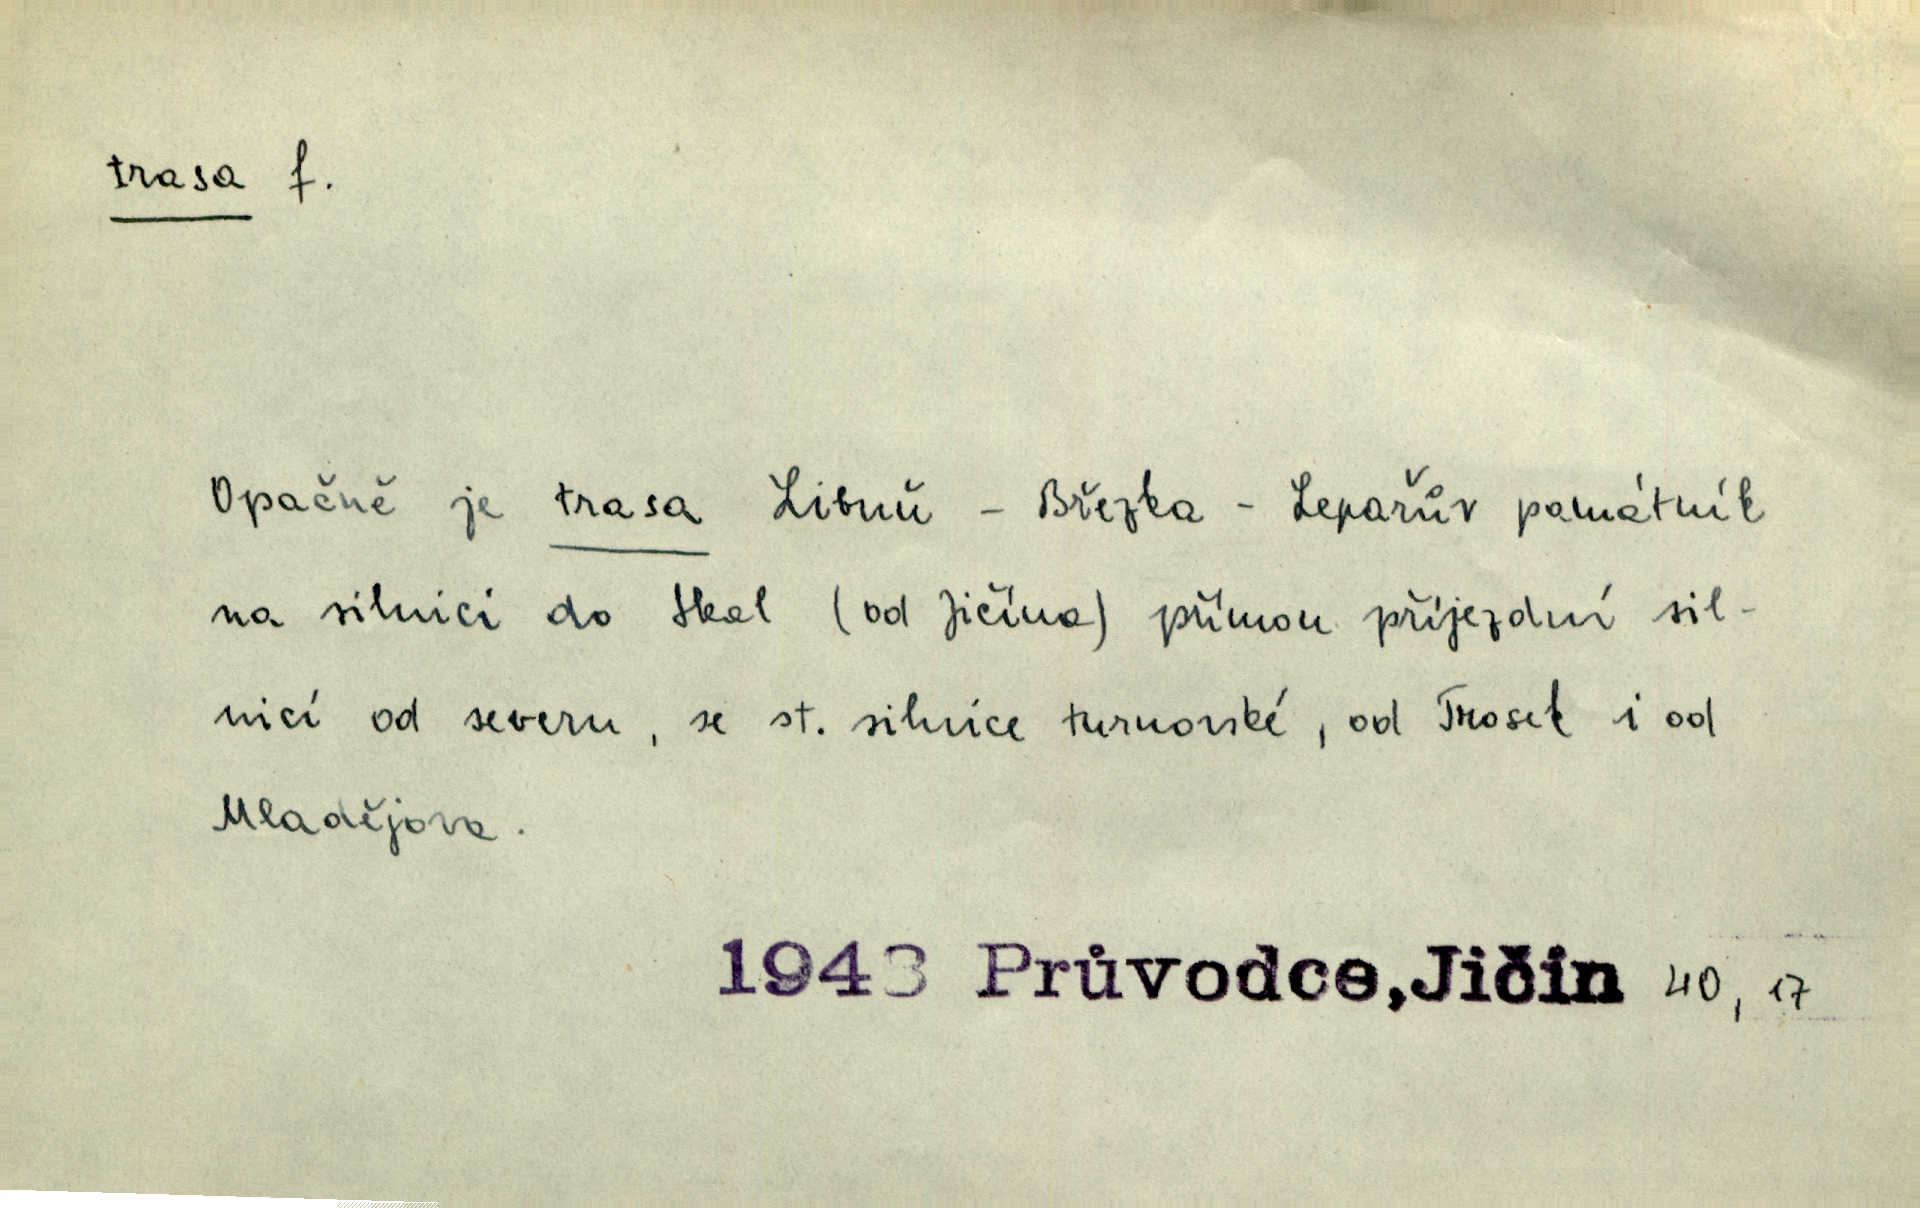 trasa f.
Opačně je trasa Libuň - Březka - Lepařův památník
na silnici do Skal (od Jičína) přímou příjezdní sil-
nicí od severu, se st. silnice turnovské, od Trosek i od
Mladějova.
1943 Průvodce,Jičín 40, 17